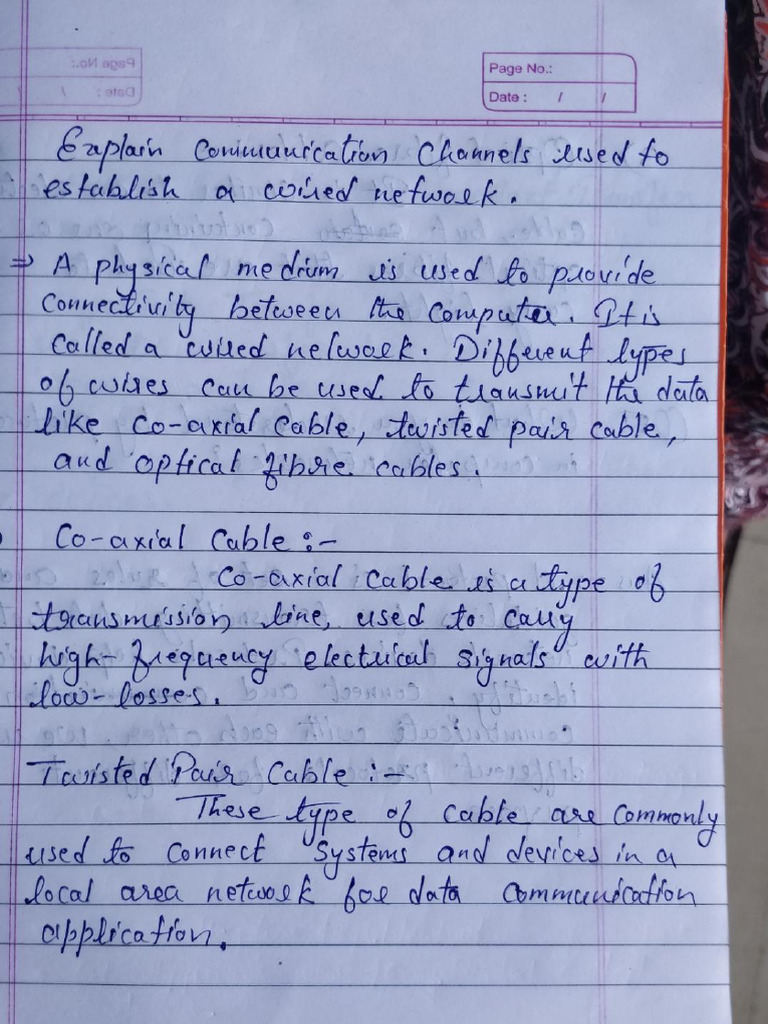 Page No.:
Date : / /
Explain Communication Channels used to
establish a wired network.
⇒ A physical medium is used to provide
Connectivity between the Computer. It is
Called a wired network. Different types
of wires can be used to transmit the data
like Co-axial Cable, twisted pair cable,
and optical fibre cables.
Co-axial Cable :-
Co-axial Cable is a type of
transmission line, used to carry
high-frequency electrical signals with
low-losses.
Twisted Pair Cable :-
These type of Cable are Commonly
used to Connect Systems and devices in a
local area network for data Communication
application.